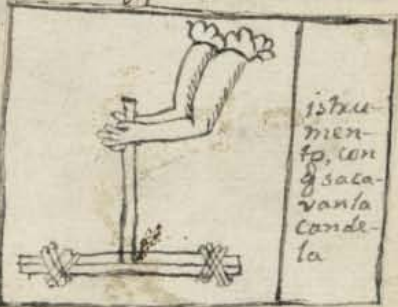 istru-
men-
to, con
q̃ saca-
van la
cande-
la